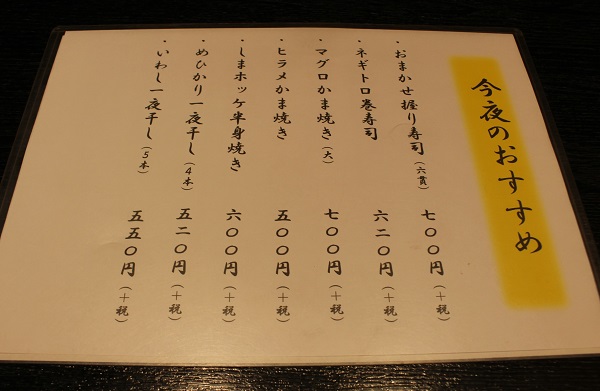 今夜のおすすめ
・おまかせ握り寿司(六貫) 七〇〇円(+税)
・ネギトロ巻寿司 六二〇円(+税)
・マグロかま焼き(大) 七〇〇円(+税)
・ヒラメかま焼き 五〇〇円(+税)
・しまホッケ半身焼き 六〇〇円(+税)
・めひかり一夜干し(4本) 五二〇円(+税)
・いわし一夜干し(5本) 五五〇円(+税)